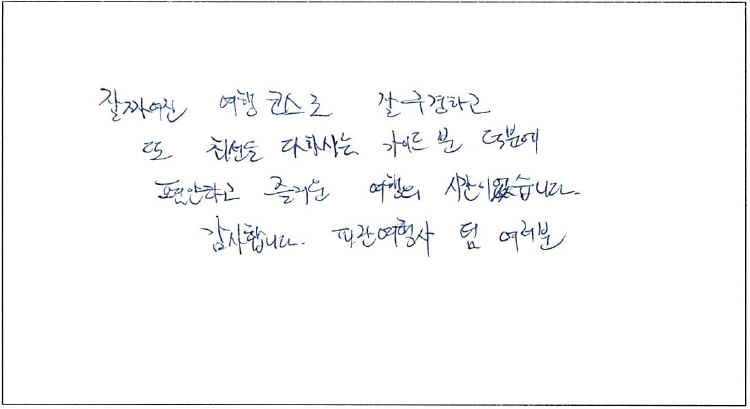 잘 짜여진 여행 코스로 잘 구경하고
또 최선을 다하시는 가이드 분 덕분에
편안하고 즐거운 여행의 시간이었습니다.
감사합니다. 여행사 팀 여러분